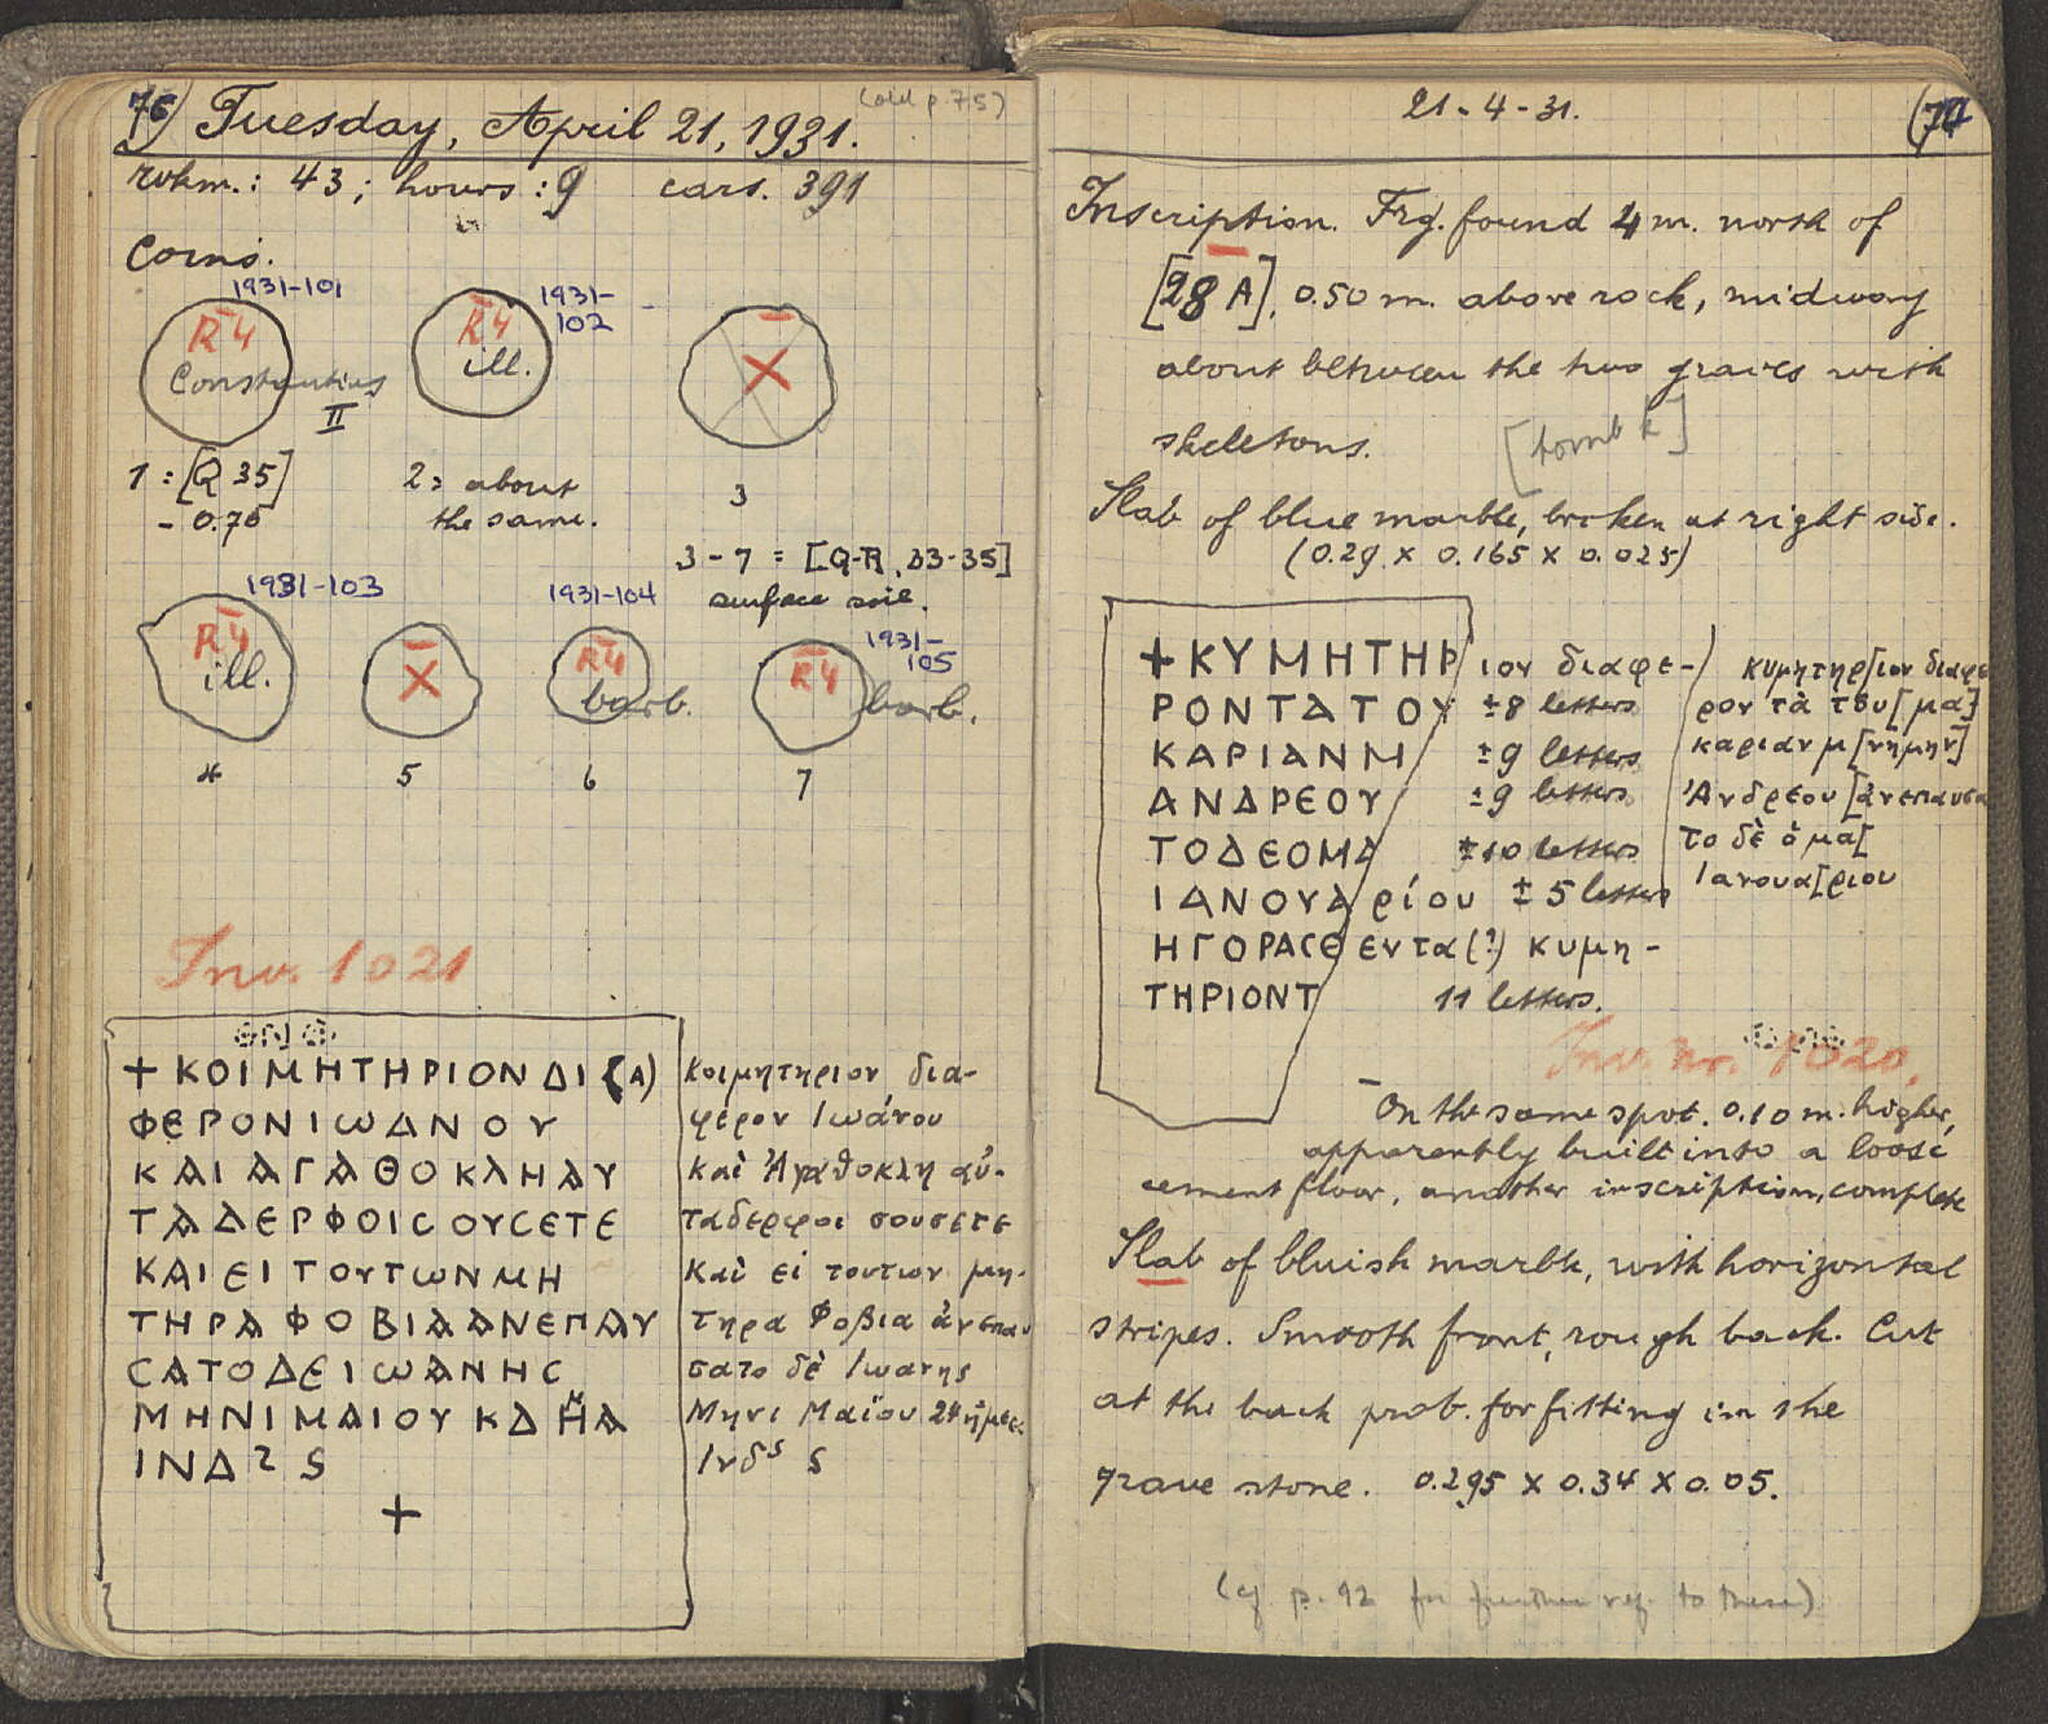 76) Tuesday, April 21, 1931. (old p. 75)
wkm.: 43; hours: 9 cars. 391
Coins.
1931-101
R4
Constantius
II
1931-
102
R4
ill.
X
1 = [Q 35]
- 0.70
2 = about
the same.
3
3 - 7 = [Q-R, 33-35]
surface soil.
1931-103
R4
ill.
X
1931-104
R4
barb.
1931-
105
R4
barb.
4
5
6
7
Inv. 1021
+ ΚΟΙΜΗΤΗΡΙΟΝ ΔΙ (Α)
ΦΕΡΟΝΙΩΑΝΟΥ
ΚΑΙΑΓΑΘΟΚΛΗΑΥ
ΤΑΔΕΡΦΟΙCΟΥCΕΤΕ
ΚΑΙΕΙΤΟΥΤΩΝΜΗ
ΤΗΡΑΦΟΒΙΑΑΝΕΠΑΥ
CΑΤΟΔΕΙΩΑΝΗC
ΜΗΝΙΜΑΙΟΥΚΔΗΜΑ
ΙΝΔ S
+
Κοιμητηριον δια-
φερον Ιωάνου
καὶ Ἀγαθοκλη αὐ-
ταδερφοι σουσετε
Καὶ εἰ τουτων μη-
τηρα Φοβια ἀνεπαυ
σατο δὲ Ιωανης
Μηνι Μαΐου 24 ἡμερ.
Ινδˢ S
21-4-31. (77
Inscription. Frg. found 4 m. north of
[28 A], 0.50 m. above rock, midway
about between the two graves with
skeletons. [tomb k]
Slab of blue marble, broken at right side.
(0.29 x 0.165 x 0.025)
+ΚΥΜΗΤΗΡ ιον διαφε-
ΡΟΝΤΑΤΟΥ ±8 letters
ΚΑΡΙΑΝΜ ±9 letters
ΑΝΔΡΕΟΥ ±9 letters
ΤΟΔΕΟΜΑ ±10 letters
ΙΑΝΟΥΑ ρίου ±5 letters
ΗΓΟΡΑCΘ εντα(?) κυμη-
ΤΗΡΙΟΝΤ 11 letters.
κυμητηρ[ιον διαφε
ρον τὰ του [μα]
καριαν μ[νημην]
Ἀνδρεου [ἀνεπαυσα
το δὲ ὁ μα[
Ιανουα[ριου
Inv. nr. 1020.
On the same spot. 0.10 m. higher,
apparently built into a loose
cement floor, another inscription, complete
Slab of bluish marble, with horizontal
stripes. Smooth front, rough back. Cut
at the back prob. for fitting in the
grave stone. 0.295 x 0.34 x 0.05.
(cf. p. 92 for further ref. to these)